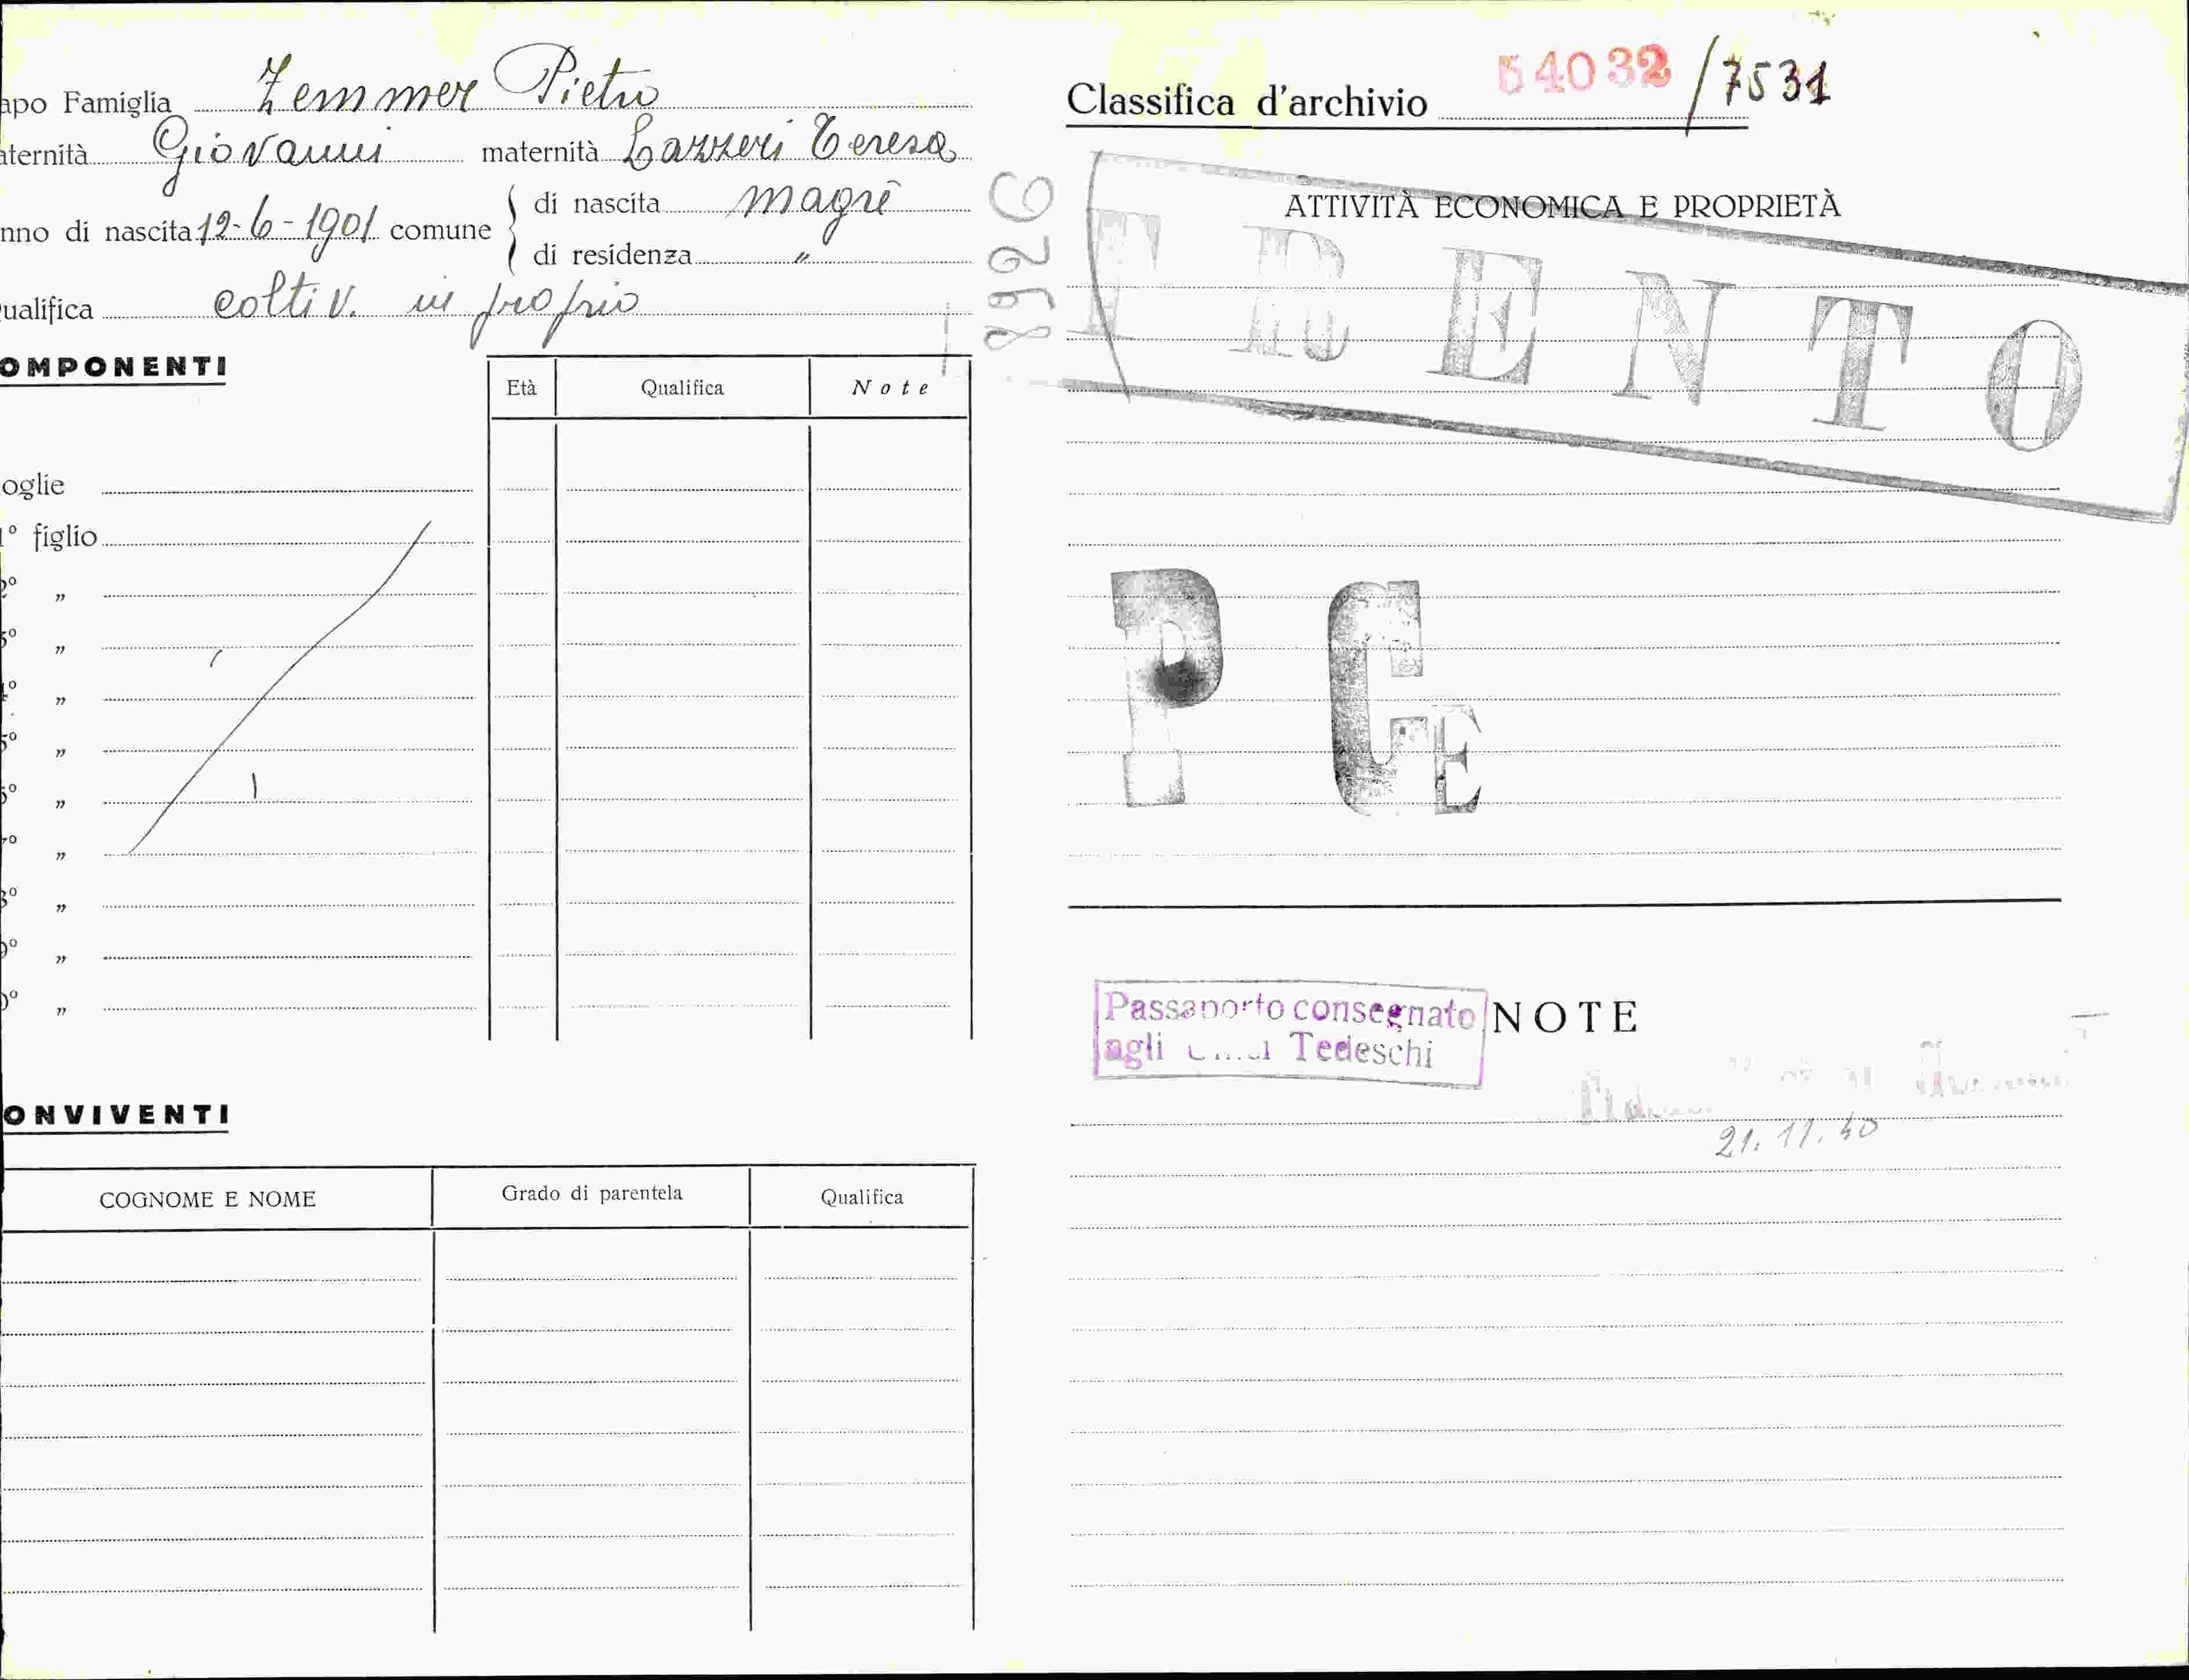 apo Famiglia Zemmer Pietro
aternità Giovanni maternità Lazzeri Teresa
nno di nascita 12-6-1901 comune
di nascita magrè
di residenza "
ualifica coltiv. in proprio
OMPONENTI
Età Qualifica Note
oglie
1° figlio
2° "
3° "
4° "
5° "
6° "
7° "
8° "
9° "
0° "
ONVIVENTI
COGNOME E NOME Grado di parentela Qualifica
Classifica d'archivio 54032/7531
8926
ATTIVITÀ ECONOMICA E PROPRIETÀ
TRENTO
P C E
Passaporto consegnato
agli Tedeschi
NOTE
21.11.40